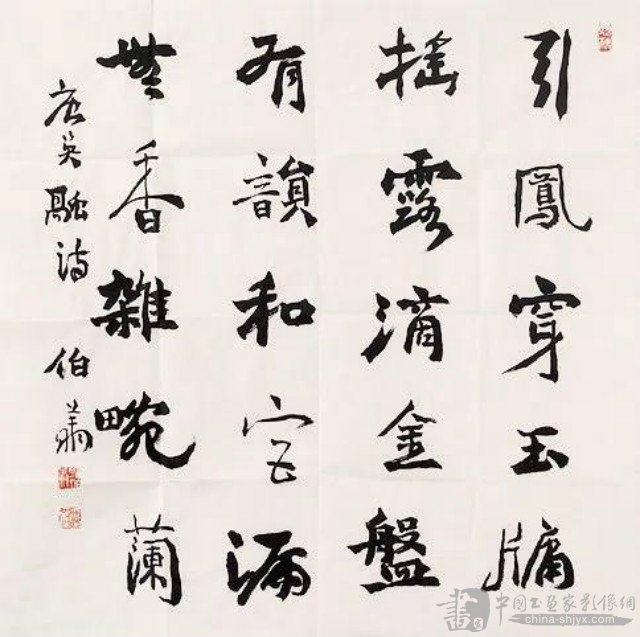 引鳳穿玉牅
搖露滴金盤
有韻和宮漏
無香雜畹蘭
唐吳融詩
伯
書
中國书画家影像網
china-shjyx.com